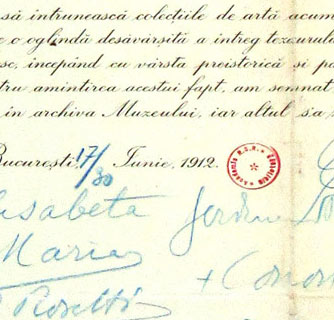 să întrunească colecțiile de artă acum
o oglindă desăvârșită a întreg tezerul
sc, începând cu vârsta preistorică și p
tru amintirea acestui fapt, am semnat
în archiva Muzeului, iar altul s-a
București 17/30 Iunie, 1912.
isabeta
Maria
Rosetti